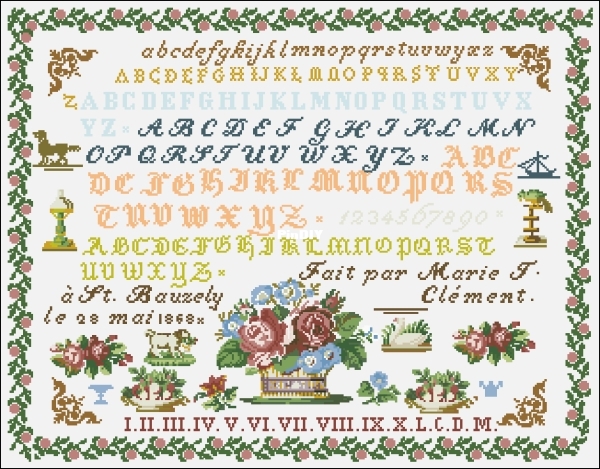 abcdefghijklmnopqrstuvwyxz
ABCDEFGHIJKLMNOPQRSTUVXY
Z ABCDEFGHIJKLMNOPQRSTUVX
YZ × ABCDEF GHIKLMN
OPQRSTUVWXYZ × ABC
DEFGHIKLMNOPQRS
TUVWXYZ × 1234567890 ×
ABCDEFGHIKLMNOPQRST
UVWXYZ × Fait par Marie T.
à St. Bauzely Clément.
le 28 mai 1868×
I.II.III.IV.V.VI.VII.VIII.IX.X.L.C.D.M.